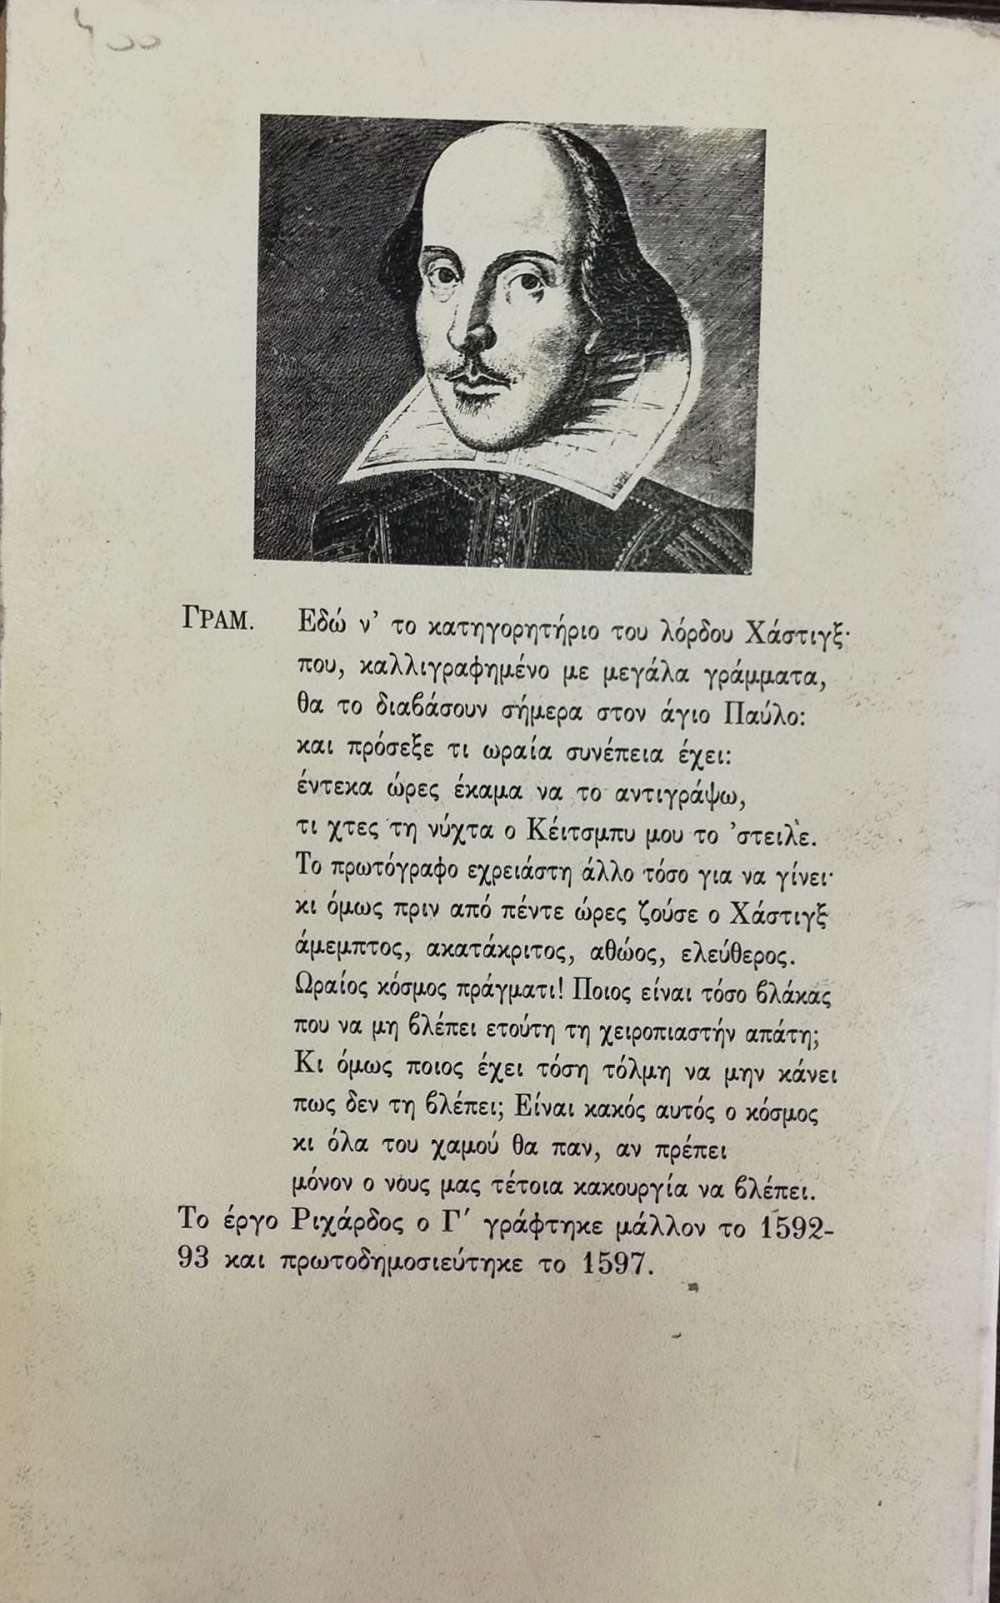 400
ΓΡΑΜ. Εδώ ν' το κατηγορητήριο του λόρδου Χάστιγξ·
που, καλλιγραφημένο με μεγάλα γράμματα,
θα το διαβάσουν σήμερα στον άγιο Παύλο:
και πρόσεξε τι ωραία συνέπεια έχει:
έντεκα ώρες έκαμα να το αντιγράψω,
τι χτες τη νύχτα ο Κέιτσμπυ μου το 'στειλε.
Το πρωτόγραφο εχρειάστη άλλο τόσο για να γίνει·
κι όμως πριν από πέντε ώρες ζούσε ο Χάστιγξ
άμεμπτος, ακατάκριτος, αθώος, ελεύθερος.
Ωραίος κόσμος πράγματι! Ποιος είναι τόσο βλάκας
που να μη βλέπει ετούτη τη χειροπιαστήν απάτη;
Κι όμως ποιος έχει τόση τόλμη να μην κάνει
πως δεν τη βλέπει; Είναι κακός αυτός ο κόσμος
κι όλα του χαμού θα παν, αν πρέπει
μόνον ο νους μας τέτοια κακουργία να βλέπει.
Το έργο Ριχάρδος ο Γ' γράφτηκε μάλλον το 1592-
93 και πρωτοδημοσιεύτηκε το 1597.